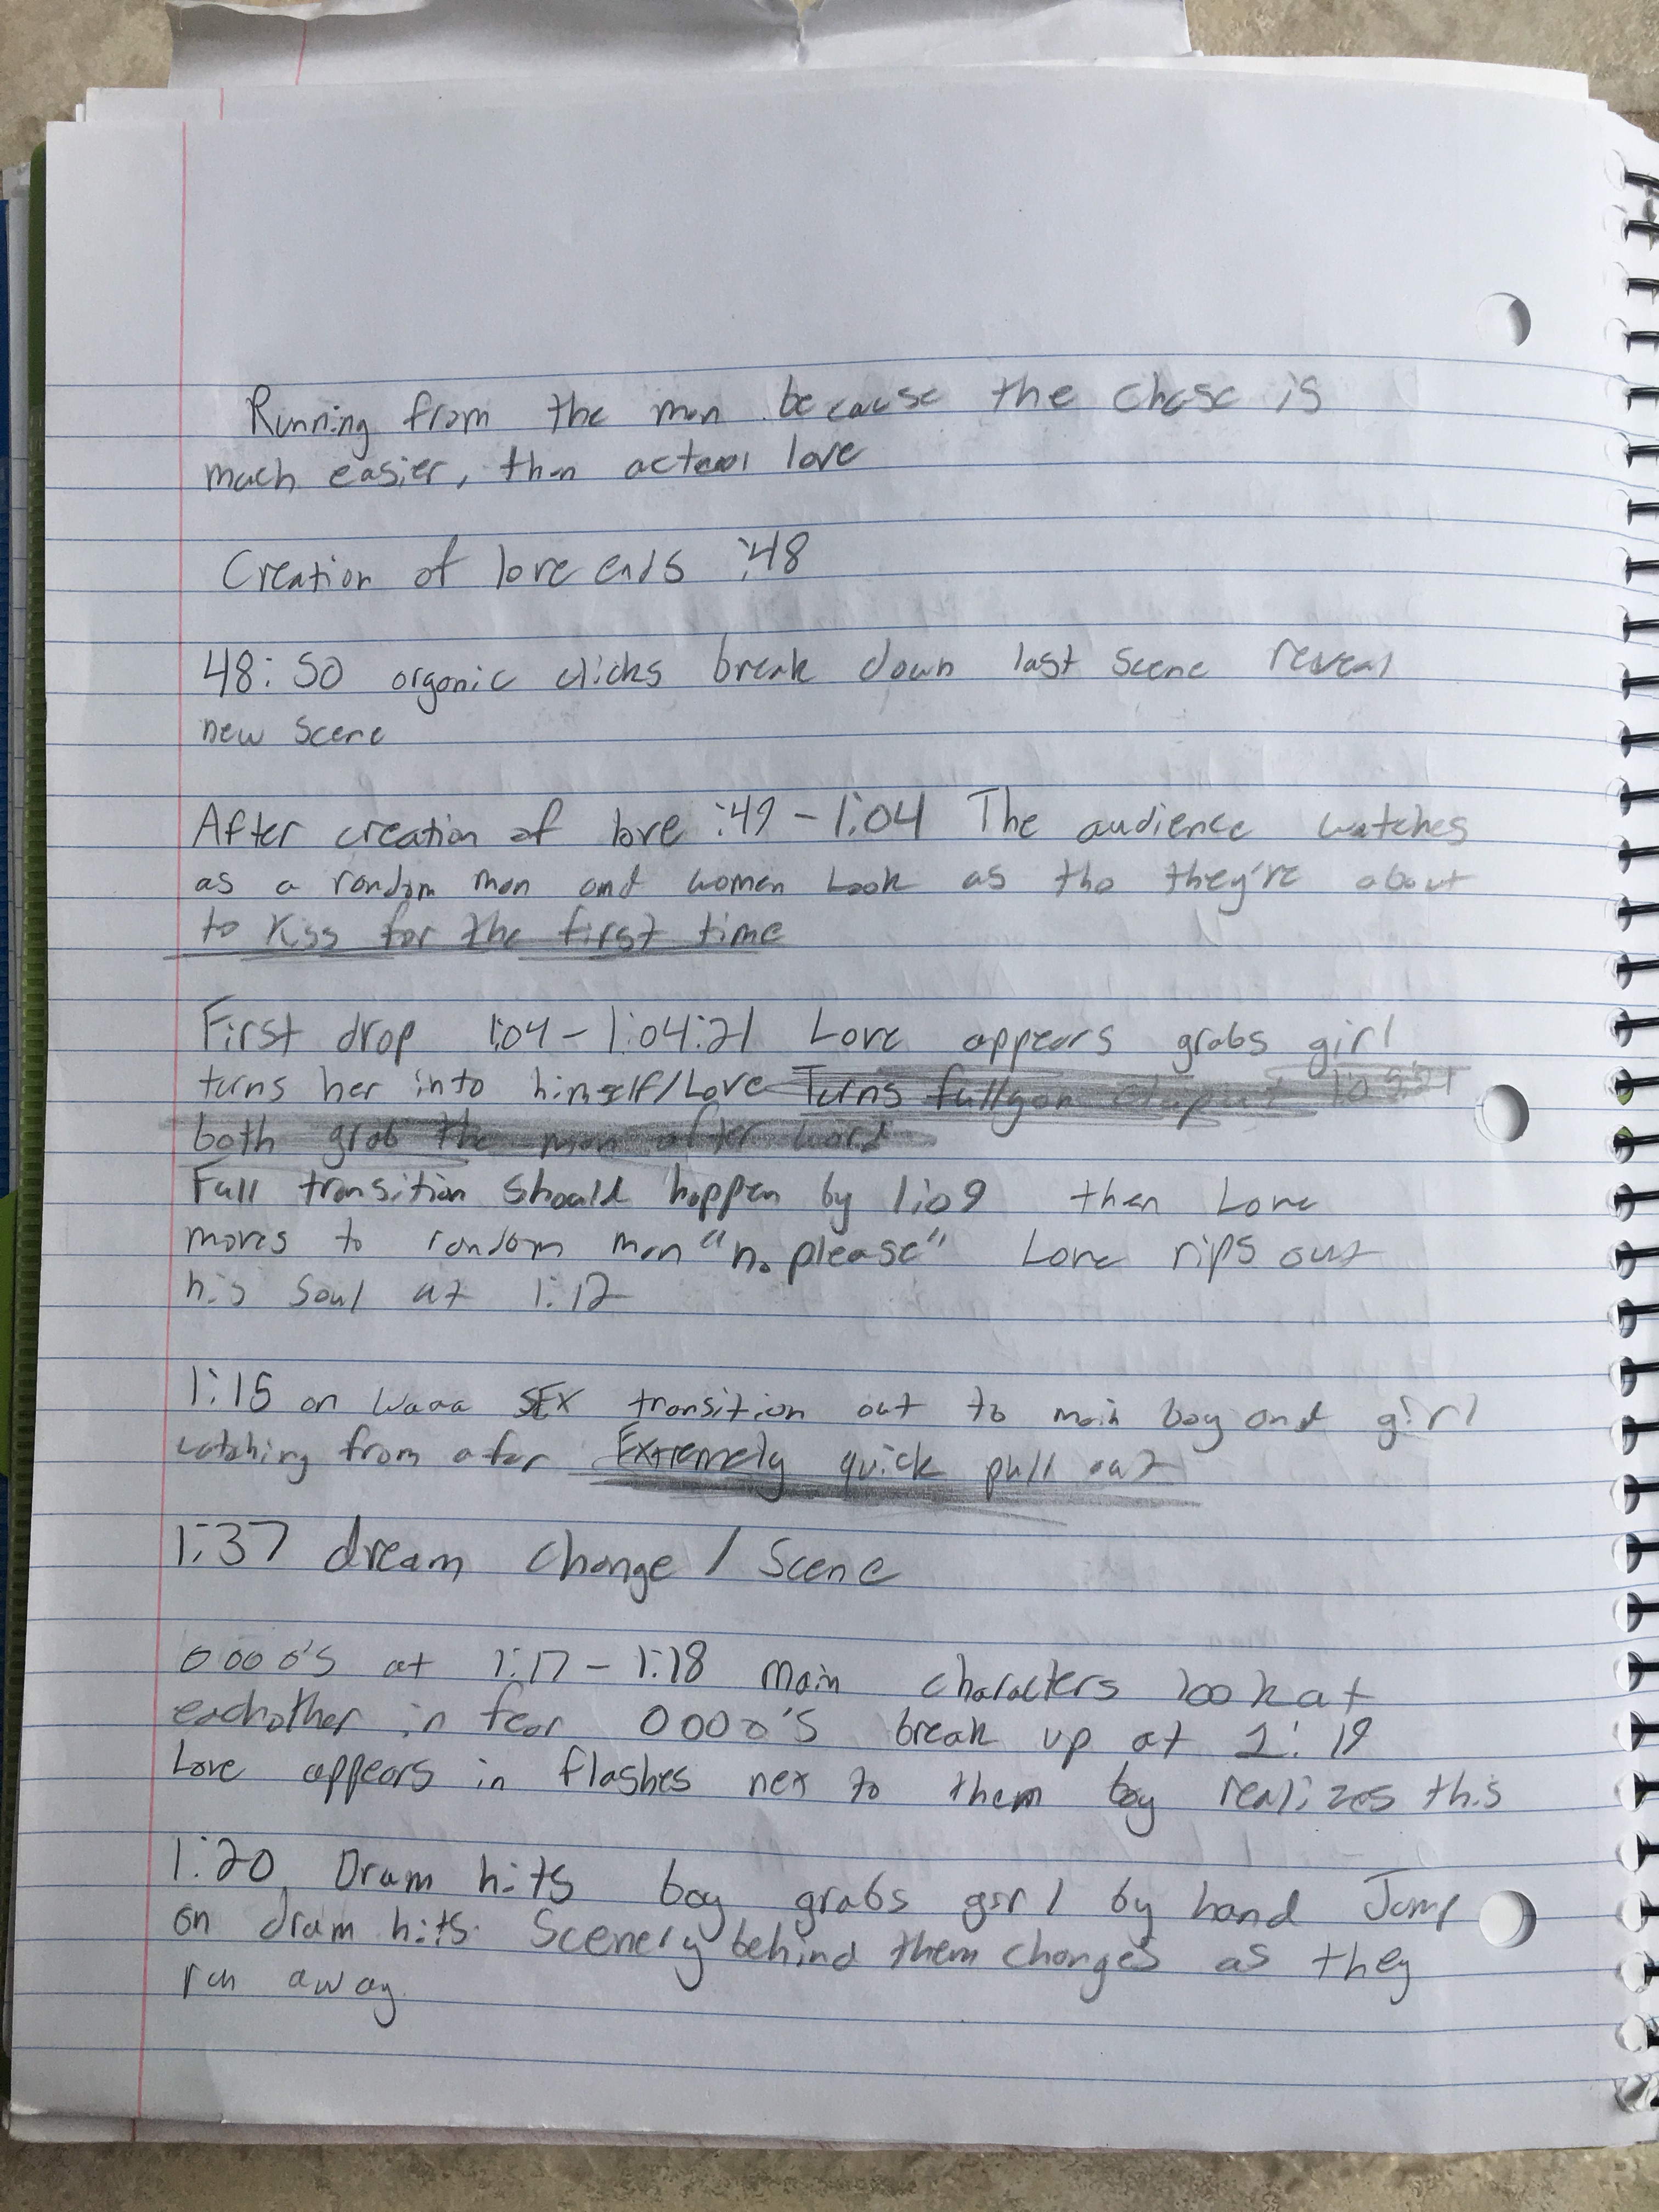 Running from the man because the chase is
much easier, then actual love
Creation of love ends :48
48:50 organic clicks break down last scene reveal
new scene
After creation of love :49 - 1:04 The audience watches
as a random man and women look as tho they're about
to kiss for the first time
First drop 1:04 - 1:04:21 Love appears grabs girl
turns her into himself/Love Turns fullyon
both grab the man after word
Full transition should happen by 1:09 then Love
moves to random man "no please" Love rips out
his soul at 1:12
1:15 on waaa SEX transition out to main boy and girl
watching from afar Extremely quick pull out
1:37 dream change / Scene
0000's at 1:17 - 1:18 main characters look at
eachother in fear 0000's break up at 1:19
Love appears in flashes nex to them boy realizes this
1:20 Drum hits boy grabs girl by hand Jump
on drum hits. Scenery behind them changes as they
run away.